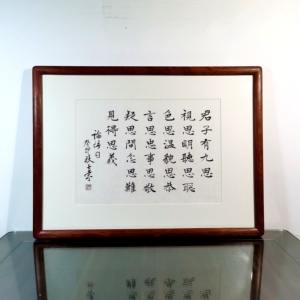 君子有九思
視思明聽思聰
色思溫貌思恭
言思忠事思敬
疑思問忿思難
見得思義
論語句